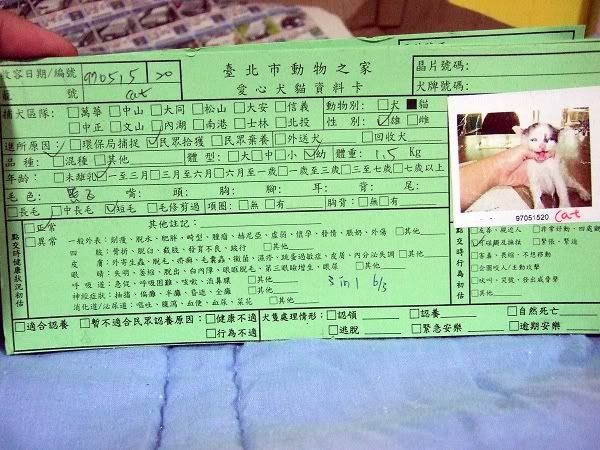 臺北市動物之家
愛心犬貓資料卡
收容日期/編號 970515 20
號 cat
晶片號碼:
犬牌號碼:
捕犬區隊: □萬華□中山□大同□松山□大安□信義 動物別: □犬 ■貓
□中正□文山□內湖□南港□士林□北投 性別: ☑雄□雌
進所原因: □環保局捕捉☑民眾拾獲□民眾棄養□外送犬 □回收犬
品種: □混種□其他 體型: □大□中□小☑幼 體重: 1.5 Kg
年齡: □未離乳☑一至三月□三月至六月□六月至一歲□一歲至三歲□三至七歲□七歲以上
毛色: 嘴: 頭: 胸: 腳: 耳: 背: 尾:
□長毛□中長毛☑短毛□毛修剪過 項圈: □無□有 胸背: □無□有
97051520 cat
點交時健康狀況初估
□正常
□異常
其他註記:
一般外表: 削瘦、脫水、肥胖、畸型、腫瘤、赫尼亞、虛弱、懷孕、發情、脹奶、外傷 □其他
四肢: 骨折、脫臼、截肢、發育不良、跛行 □其他
皮膚: 外寄生蟲、脫毛、疥癬、毛囊蟲、黴菌、濕疹、疏普過敏症、皮屑、內分泌失調 □其他
眼睛: 失明、萎縮、脫出、白內障、眼瞼脫毛、第三眼瞼增生、眼屎 □其他
呼吸道: 急促、呼吸困難、咳嗽、流鼻膿 □其他
神經症狀: 抽搐、偏癱、半癱、昏迷、全癱 □其他
消化道/泌尿道: 嘔吐、腹瀉、血便、血尿、菜花 □其他
3 in 1 6/3
點交時行為初估
□友善、親近人 □非常好動、四處觀
□緊張、緊迫
□害羞、畏縮、不想移動
□企圖咬人/主動攻擊
□吠叫、哭號、發出威脅聲
□其他
□適合認養 □暫不適合民眾認養原因: □健康不適
□行為不適
犬隻處理情形: □認領 □認養 □自然死亡
□逃脫 □緊急安樂 □逾期安樂